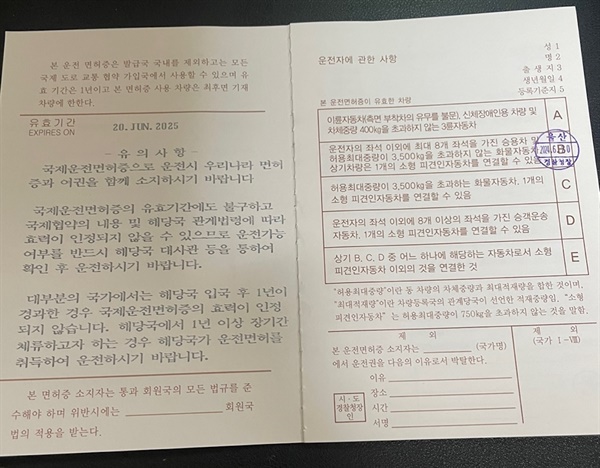 본 운전 면허증은 발급국 국내를 제외하고는 모든
국제 도로 교통 협약 가입국에서 사용할 수 있으며 유
효 기간은 1년이고 본 면허증 사용 차량은 최후면 기재
차량에 한한다.
유효기간
EXPIRES ON
20. JUN. 2025
- 유 의 사 항 -
국제운전면허증으로 운전시 우리나라 면허
증과 여권을 함께 소지하시기 바랍니다
국제운전면허증의 유효기간에도 불구하고
국제협약의 내용 및 해당국 관계법령에 따라
효력이 인정되지 않을 수 있으므로 운전가능
여부를 반드시 해당국 대사관 등을 통하여
확인 후 운전하시기 바랍니다.
대부분의 국가에서는 해당국 입국 후 1년이
경과한 경우 국제운전면허증의 효력이 인정
되지 않습니다. 해당국에서 1년 이상 장기간
체류하고자 하는 경우 해당국가 운전면허를
취득하여 운전하시기 바랍니다.
본 면허증 소지자는 통과 회원국의 모든 법규를 준
수해야 하며 위반시에는 회원국
법의 적용을 받는다.
운전자에 관한 사항
성 1
명 2
출 생 지 3
생년월일 4
등록기준지 5
본 운전면허증이 유효한 차량
이륜자동차(측면 부착차의 유무를 불문), 신체장애인용 차량 및
차체중량 400kg을 초과하지 않는 3륜자동차
A
운전자의 좌석 이외에 최대 8개 좌석을 가진 승용차 및
허용최대중량이 3,500kg을 초과하지 않는 화물자동차
상기차량은 1개의 소형 피견인자동차를 연결할 수 있음
B
허용최대중량이 3,500kg을 초과하는 화물자동차. 1개의
소형 피견인자동차를 연결할 수 있음
C
운전자의 좌석 이외에 8개 이상의 좌석을 가진 승객운송
자동차. 1개의 소형 피견인자동차를 연결할 수 있음
D
상기 B, C, D 중 어느 하나에 해당하는 자동차로서 소형
피견인자동차 이외의 것을 연결한 것
E
"허용최대중량"이란 동 차량의 차체중량과 최대적재량을 합한 것이며,
"최대적재량"이란 차량등록국의 관계당국이 선언한 적재중량임. "소형
피견인자동차" 는 허용최대중량이 750kg을 초과하지 않는 것을 말함.
제 외
본 운전면허증 소지자는 (국가명)
에서 운전권을 다음의 이유로서 박탈한다.
이유
장소
시간
서명
시·도
경찰청장
인
제 외
(국가 I-VIII)